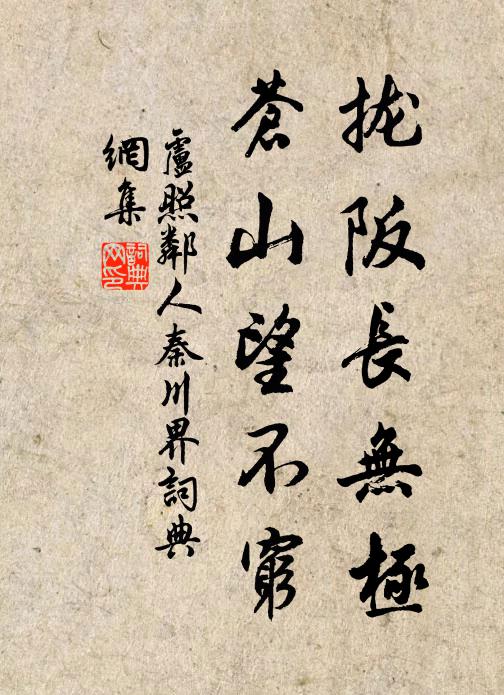 拢阪長無極
蒼山望不窮
盧照鄰人秦川界詞典
網集
詞典
网印